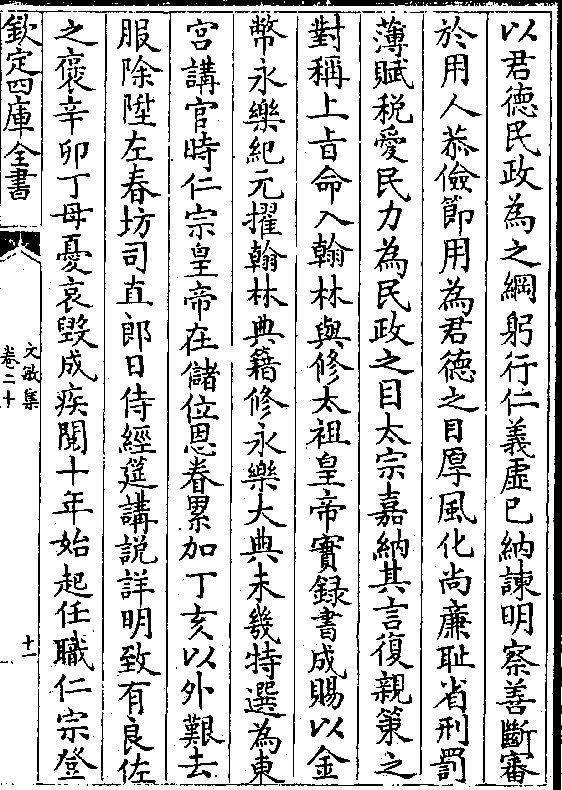 以君德民政為之綱躬行仁義虛己納諫明察善斷審
於用人恭儉節用為君德之目厚風化尚廉恥省刑罰
薄賦稅愛民力為民政之目太宗嘉納其言復親策之
對稱上旨命入翰林與修太祖皇帝實録書成賜以金
幣永樂紀元擢翰林典籍修永樂大典未幾特選為東
宮講官時仁宗皇帝在儲位恩眷累加丁亥以外艱去
服除陞左春坊司直郎日侍經筵講說詳明致有良佐
之褒辛卯丁母憂哀毀成疾閱十年始起任職仁宗登
欽定四庫全書
文敏集
卷二十
十一